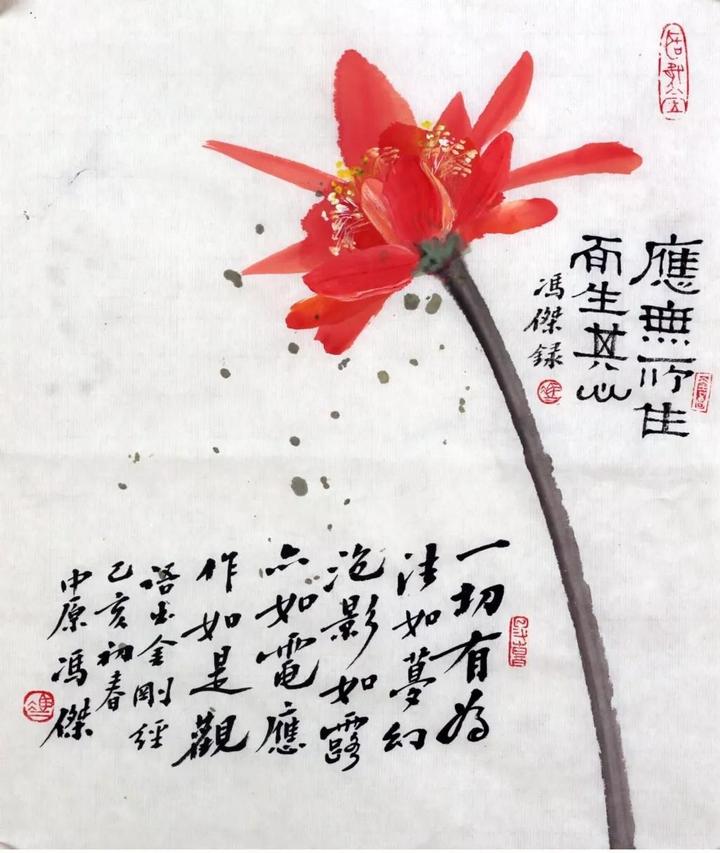 應無所住
而生其心
馮傑録
一切有為
法如夢幻
泡影如露
亦如電應
作如是觀
語出金剛經
己亥初春
中原馮傑